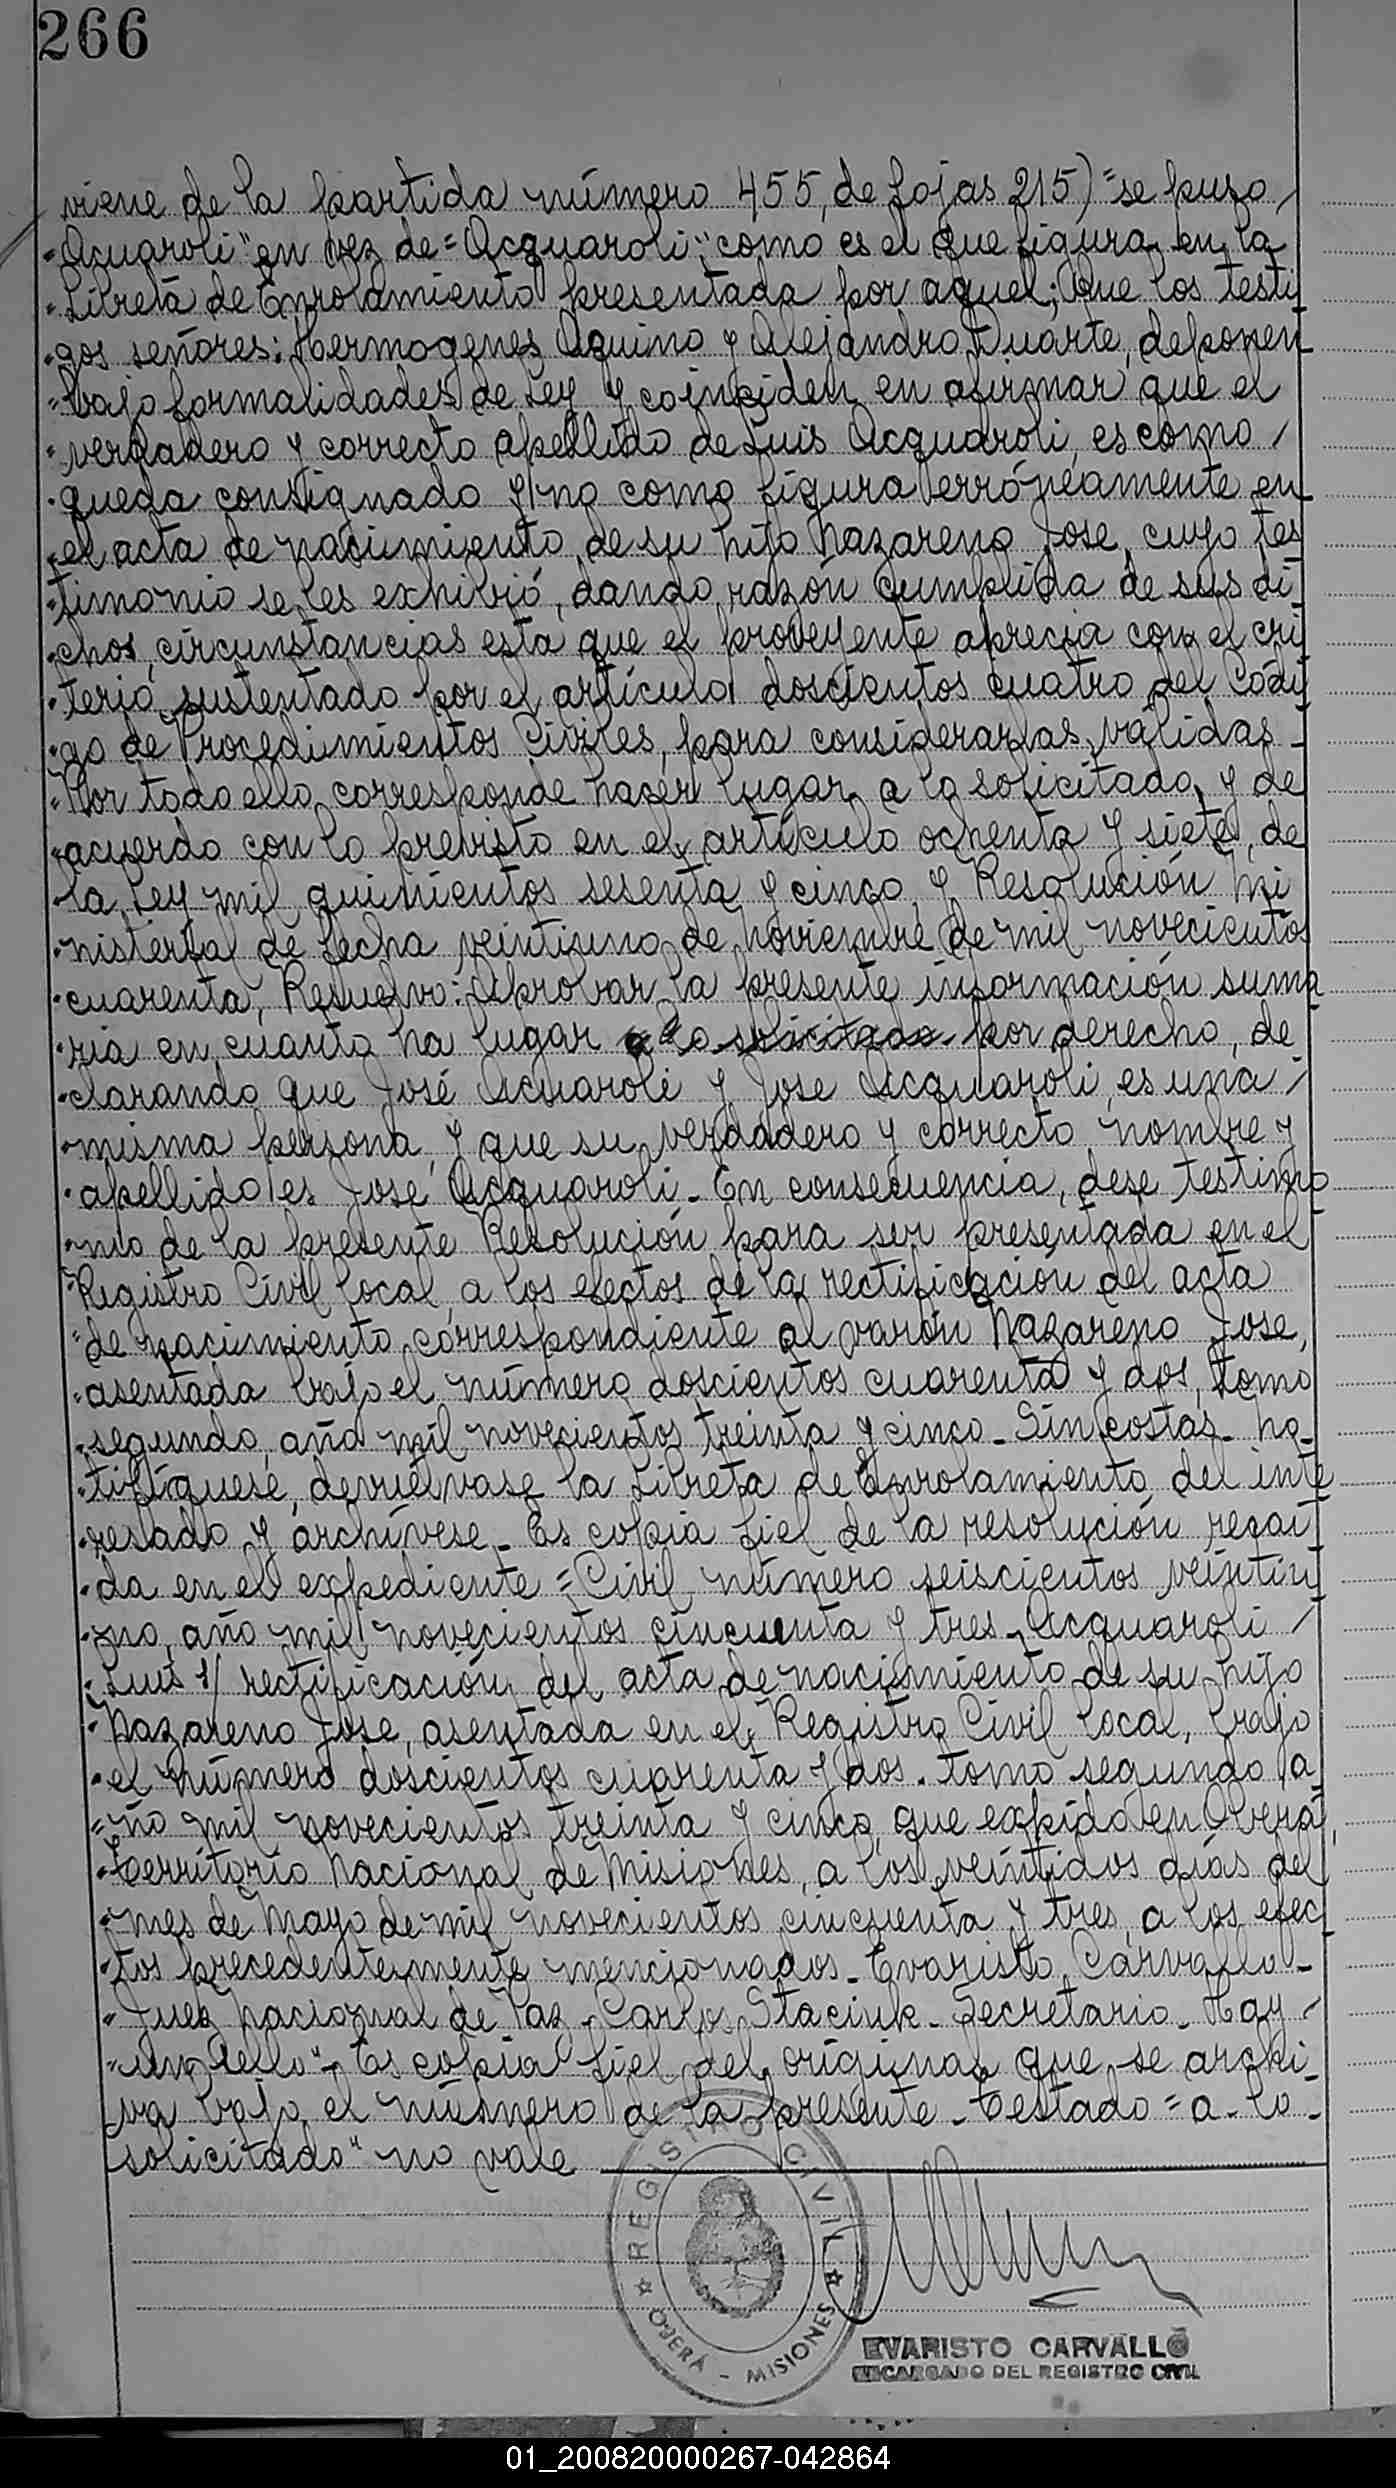 266
viene de la partida número 455, de fojas 215) "se puso /
"Acuaroli" en vez de = Acquaroli", como es el que figura en la
"Libreta de Enrolamiento presentada por aquel; Que los testi
"gos señores: Hermogenes Aquino y Alejandro Duarte, deponen
"bajo formalidades de Ley y coinciden en afirmar que el
"verdadero y correcto apellido de Luis Acquaroli, es como /
"queda consignado y no como figura erróneamente en
"el acta de nacimiento de su hijo Nazareno Jose, cuyo tes
"timonio se les exhibió, dando razón cumplida de sus di
"chos, circunstancias esta que el proveyente aprecia con el cri
"terio sustentado por el artículo doscientos cuatro del Códi
"go de Procedimientos Civiles, para considerarlas válidas -
"Por todo ello, corresponde hacer lugar a lo solicitado, y de
"acuerdo con lo previsto en el artículo ochenta y siete, de
"la Ley mil quinientos sesenta y cinco, y Resolución Mi
"nisterial de fecha veintiuno de Noviembre de mil novecientos
"cuarenta, Resuelvo: Aprobar la presente información suma
"ria en cuanto ha lugar a lo solicitado por derecho, de
"clarando que José Acuaroli y Jose Acquaroli, es una /
"misma persona, y que su verdadero y correcto nombre y
"apellido es Jose Acquaroli - En consecuencia, dese testimo
"nio de la presente Resolución para ser presentada en el
"Registro Civil local, a los efectos de la rectificación del acta
"de nacimiento correspondiente al varón Nazareno Jose,
"asentada bajo el número doscientos cuarenta y dos, tomo
"segundo, año mil novecientos treinta y cinco - Sin costas - No-
"tifíquese, devuélvase la Libreta de Enrolamiento del inte
"resado y archívese - Es copia fiel de la resolución recaí
"da en el expediente = Civil número seiscientos veintiu
"no, año mil novecientos cincuenta y tres - Acquaroli /
"Luis s/ rectificación del acta de nacimiento de su hijo
"Nazareno Jose, asentada en el Registro Civil local, bajo
"el número doscientos cuarenta y dos. tomo segundo a
"ño mil novecientos treinta y cinco, que expido en Oberá,
"Territorio Nacional de Misiones, a los veintidos días del
"mes de Mayo de mil novecientos cincuenta y tres, a los efec
"tos precedentemente mencionados - Evaristo Carvallo -
"Juez Nacional de Paz - Carlos Staciuk - Secretario - Hay /
"un sello" - Es copia fiel del original que se archi
va bajo el número de la presente - Testado = a - lo -
solicitado" no vale
REGISTRO CIVIL
OBERÁ - MISIONES
EVARISTO CARVALLO
ENCARGADO DEL REGISTRO CIVIL
01_200820000267-042864